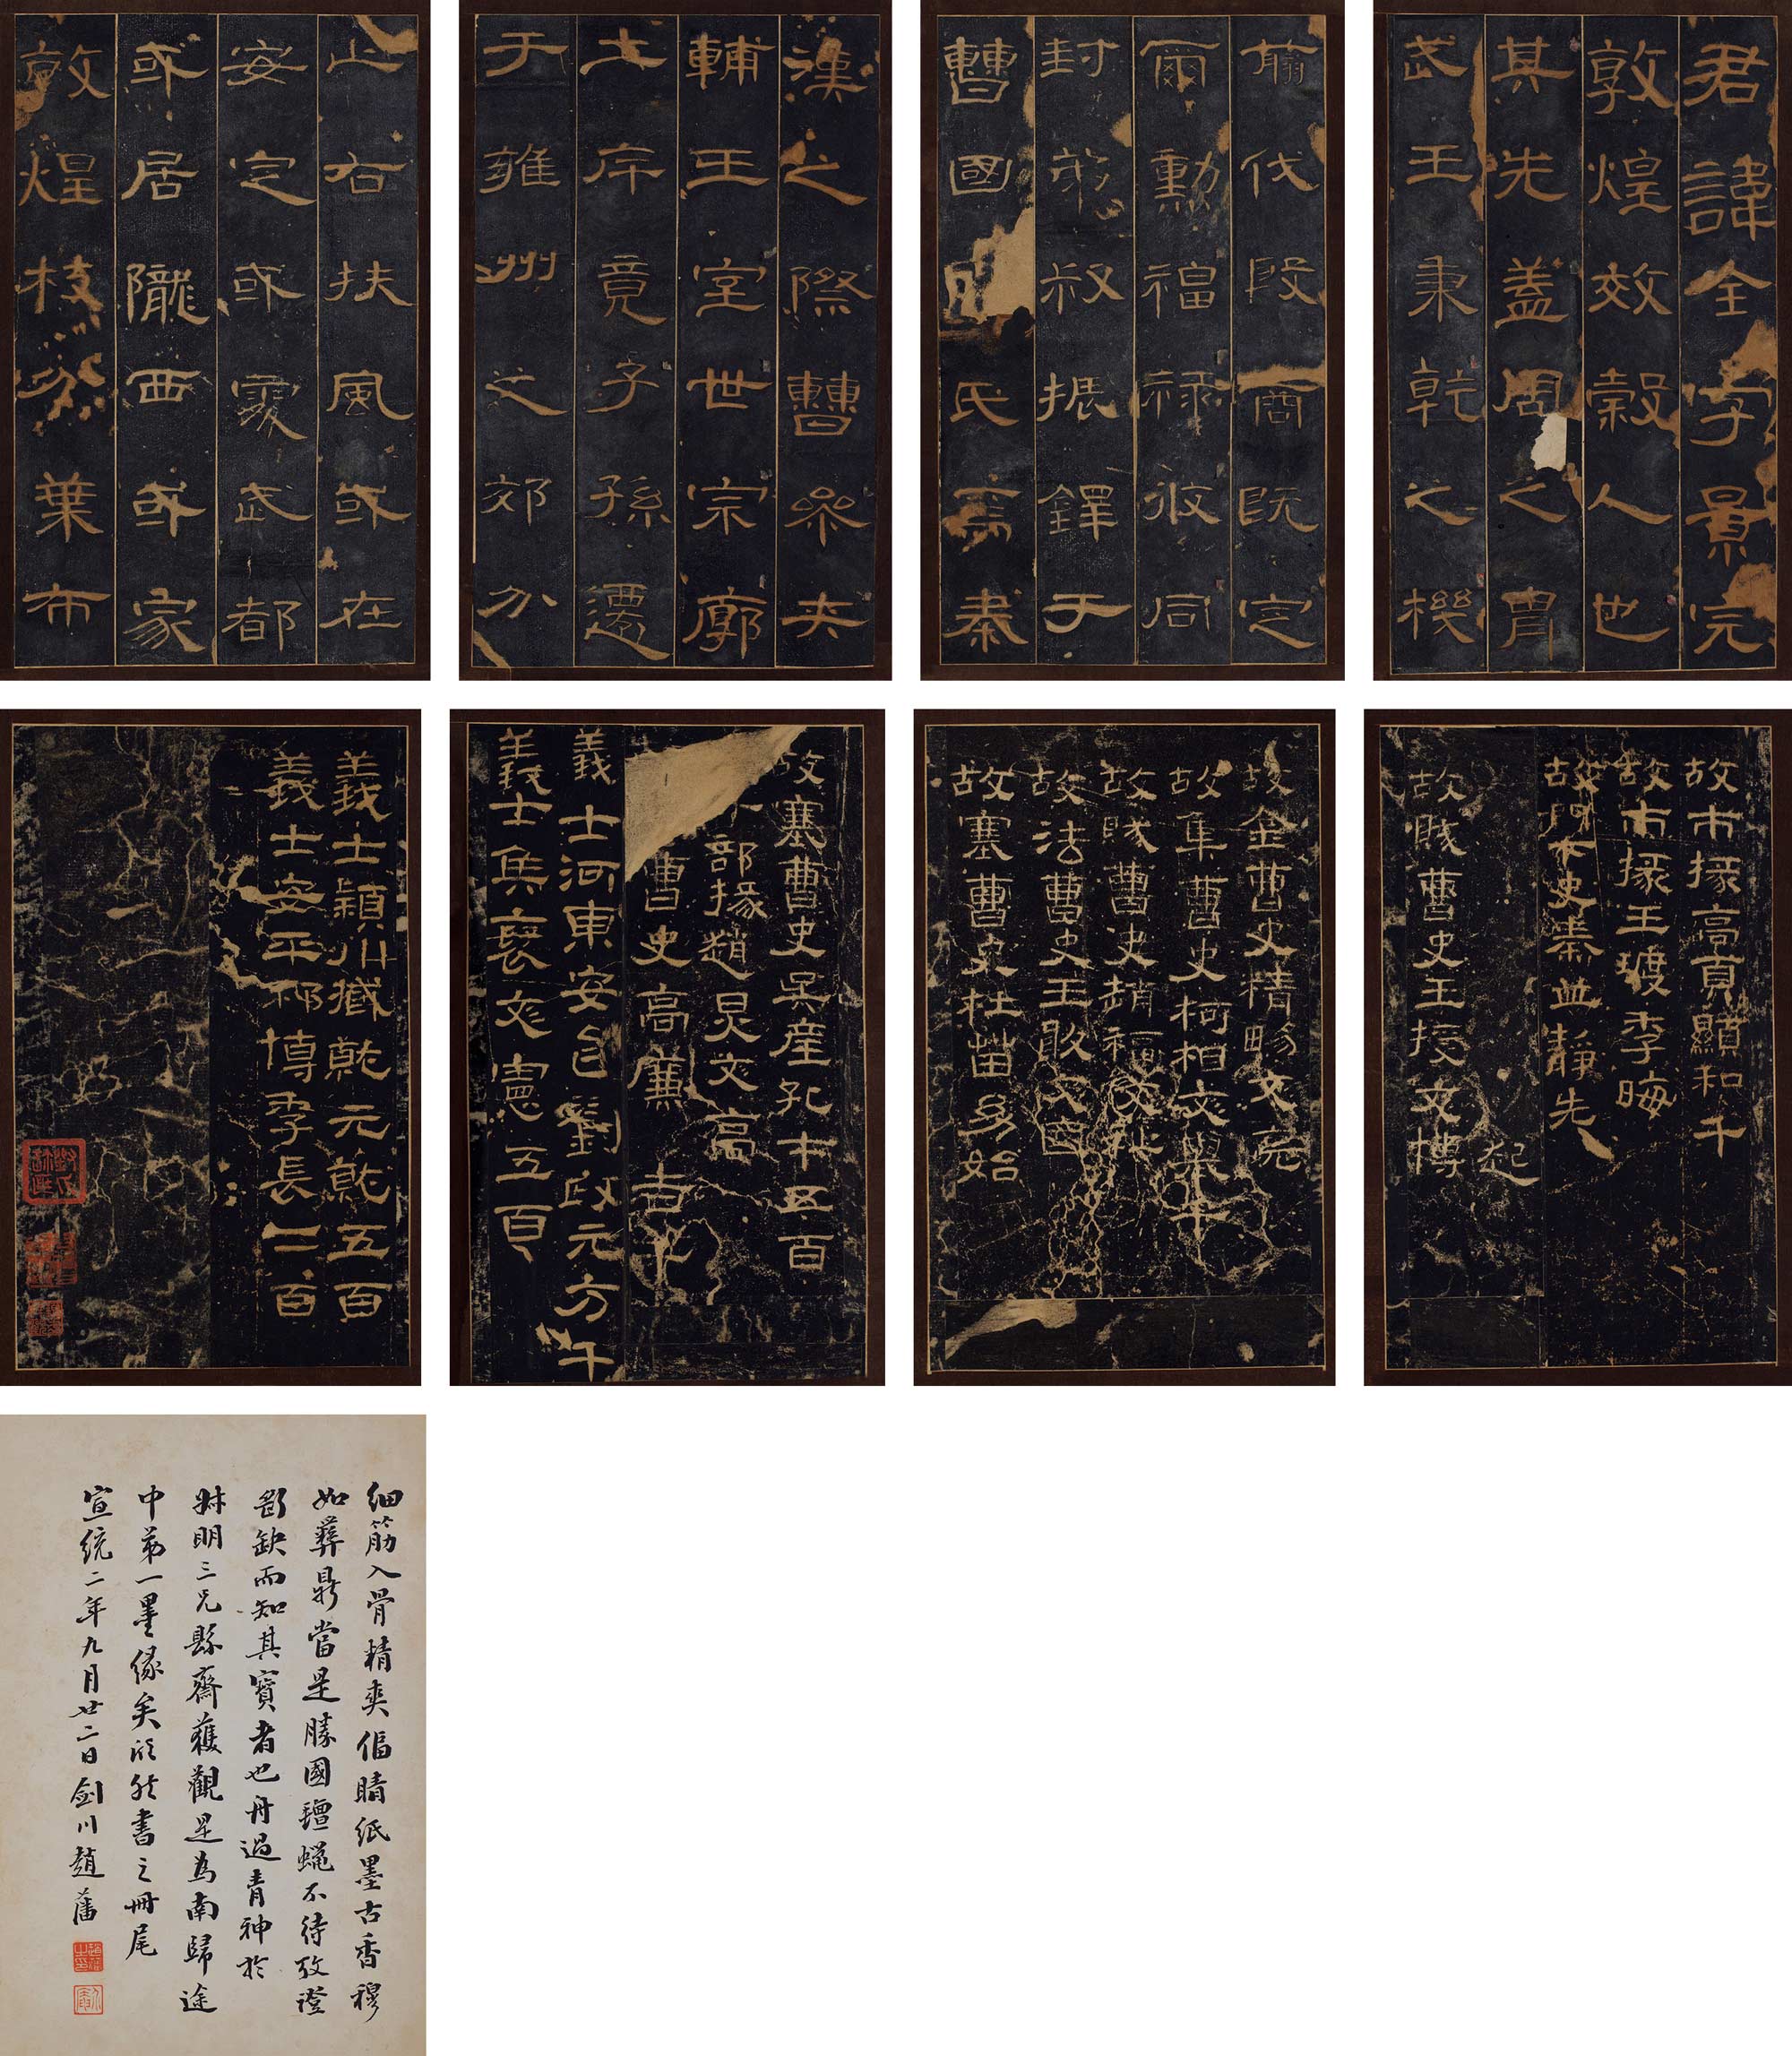 君諱全字景完
敦煌效穀人也
其先蓋周之胄
武王秉乾之機
翦伐殷商既定
爾勳福祿攸同
封弟叔振鐸于
曹國因氏焉秦
漢之際曹參夾
輔王室世宗廓
土斥竟子孫遷
于雍州之郊分
止右扶風或在
安定或處武都
或居隴西或家
敦煌枝分葉布
故市掾高頁顯和千
故市掾王玻季晦
故門下史秦並靜先
起
故賊曹史王授文博
故金曹史精暘文亮
故集曹史柯相文舉千
故賊曹史趙福文祉
故法曹史王敢文國
故塞曹史杜苗幼始
故塞曹史吳產孔才五百
部掾趙炅文高
曹史高廉吉千
義士河東安邑劉政元方千
義士侯褒文憲五百
義士潁川臧就元就五百
義士安平祁博季長二百
細筋入骨精爽偪睛紙墨古香穆
如彝鼎當是勝國氊蠟不待攷證
斷缺而知其寶者也舟過青神於
尗明三兄縣齋獲觀是為南歸途
中第一墨緣矣欣然書之冊尾
宣統二年九月廿二日劍川趙藩